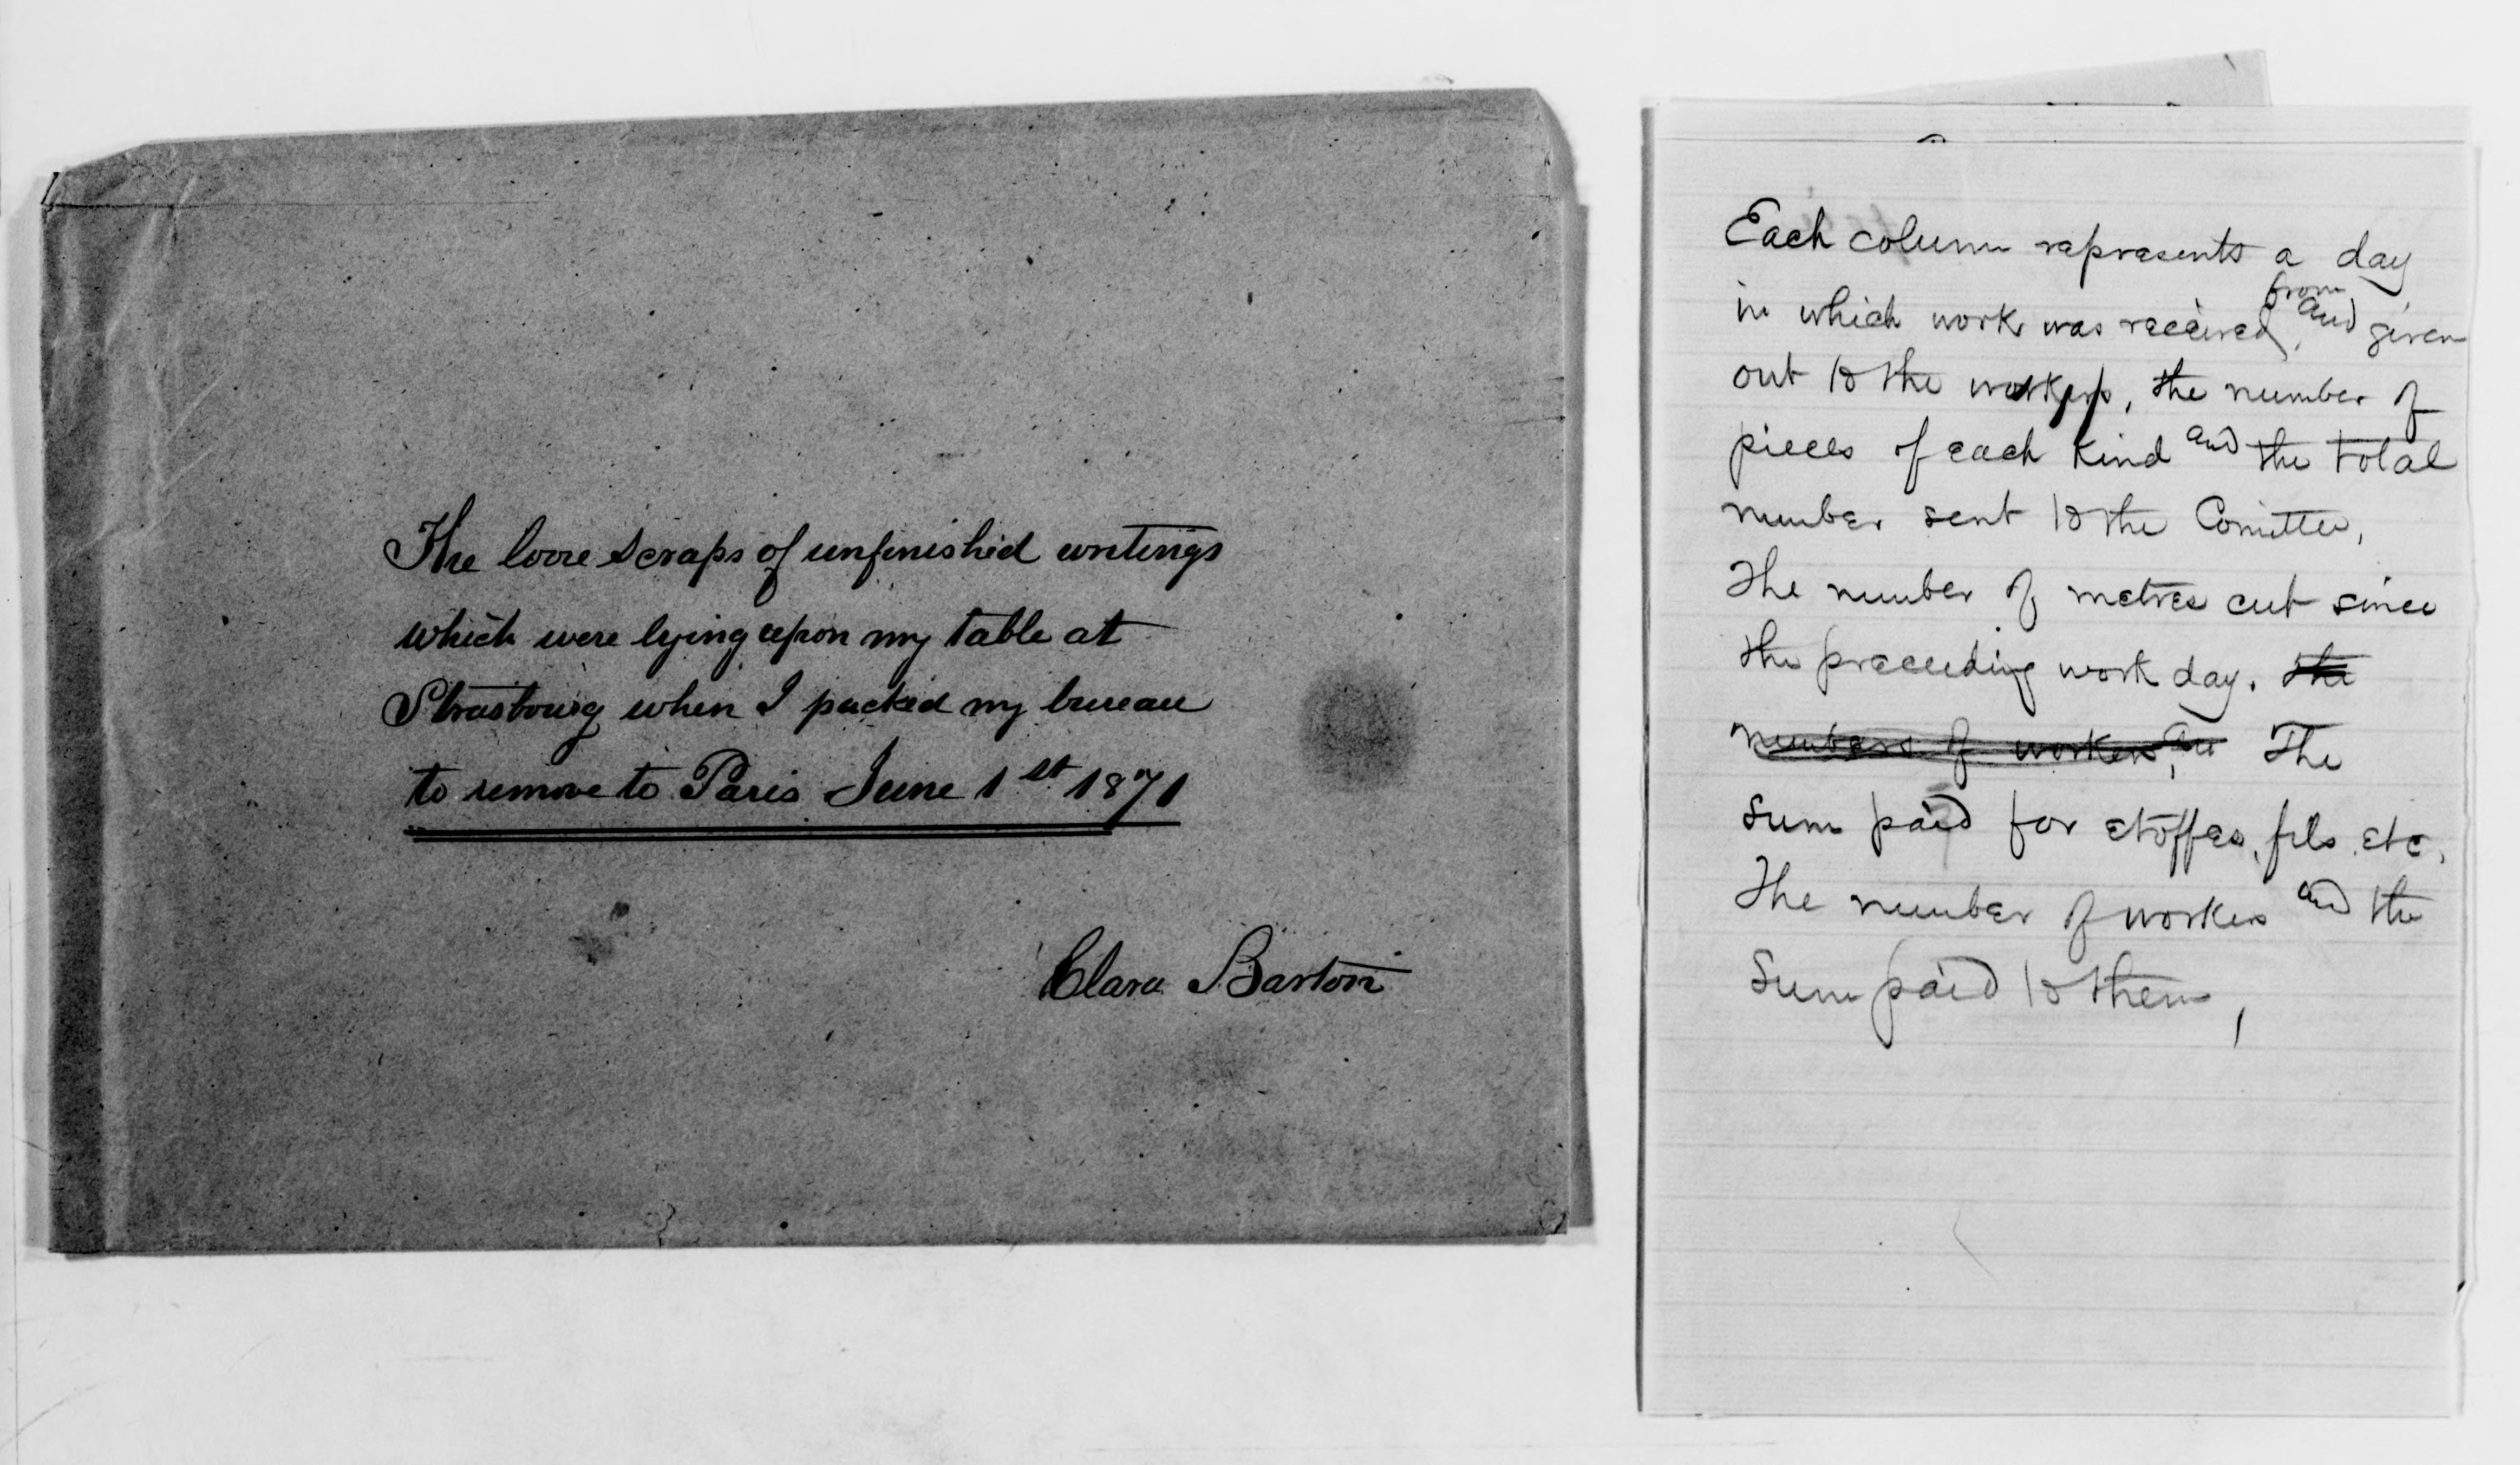 The loose scraps of unfinished writings
which were lying upon my table at
Strasbourg when I packed my bureau
to remove to Paris June 1st 1871
Clara Barton
Each column represents a day
in which work was received, from and given
out to the workers, the number of
pieces of each kind and the total
number sent to the Comittee,
The number of metres cut since
the preceeding work day. the
numbers of workers, and The
Sum paid for etoffes, fils etc.
The number of workers and the
Sum paid to them,